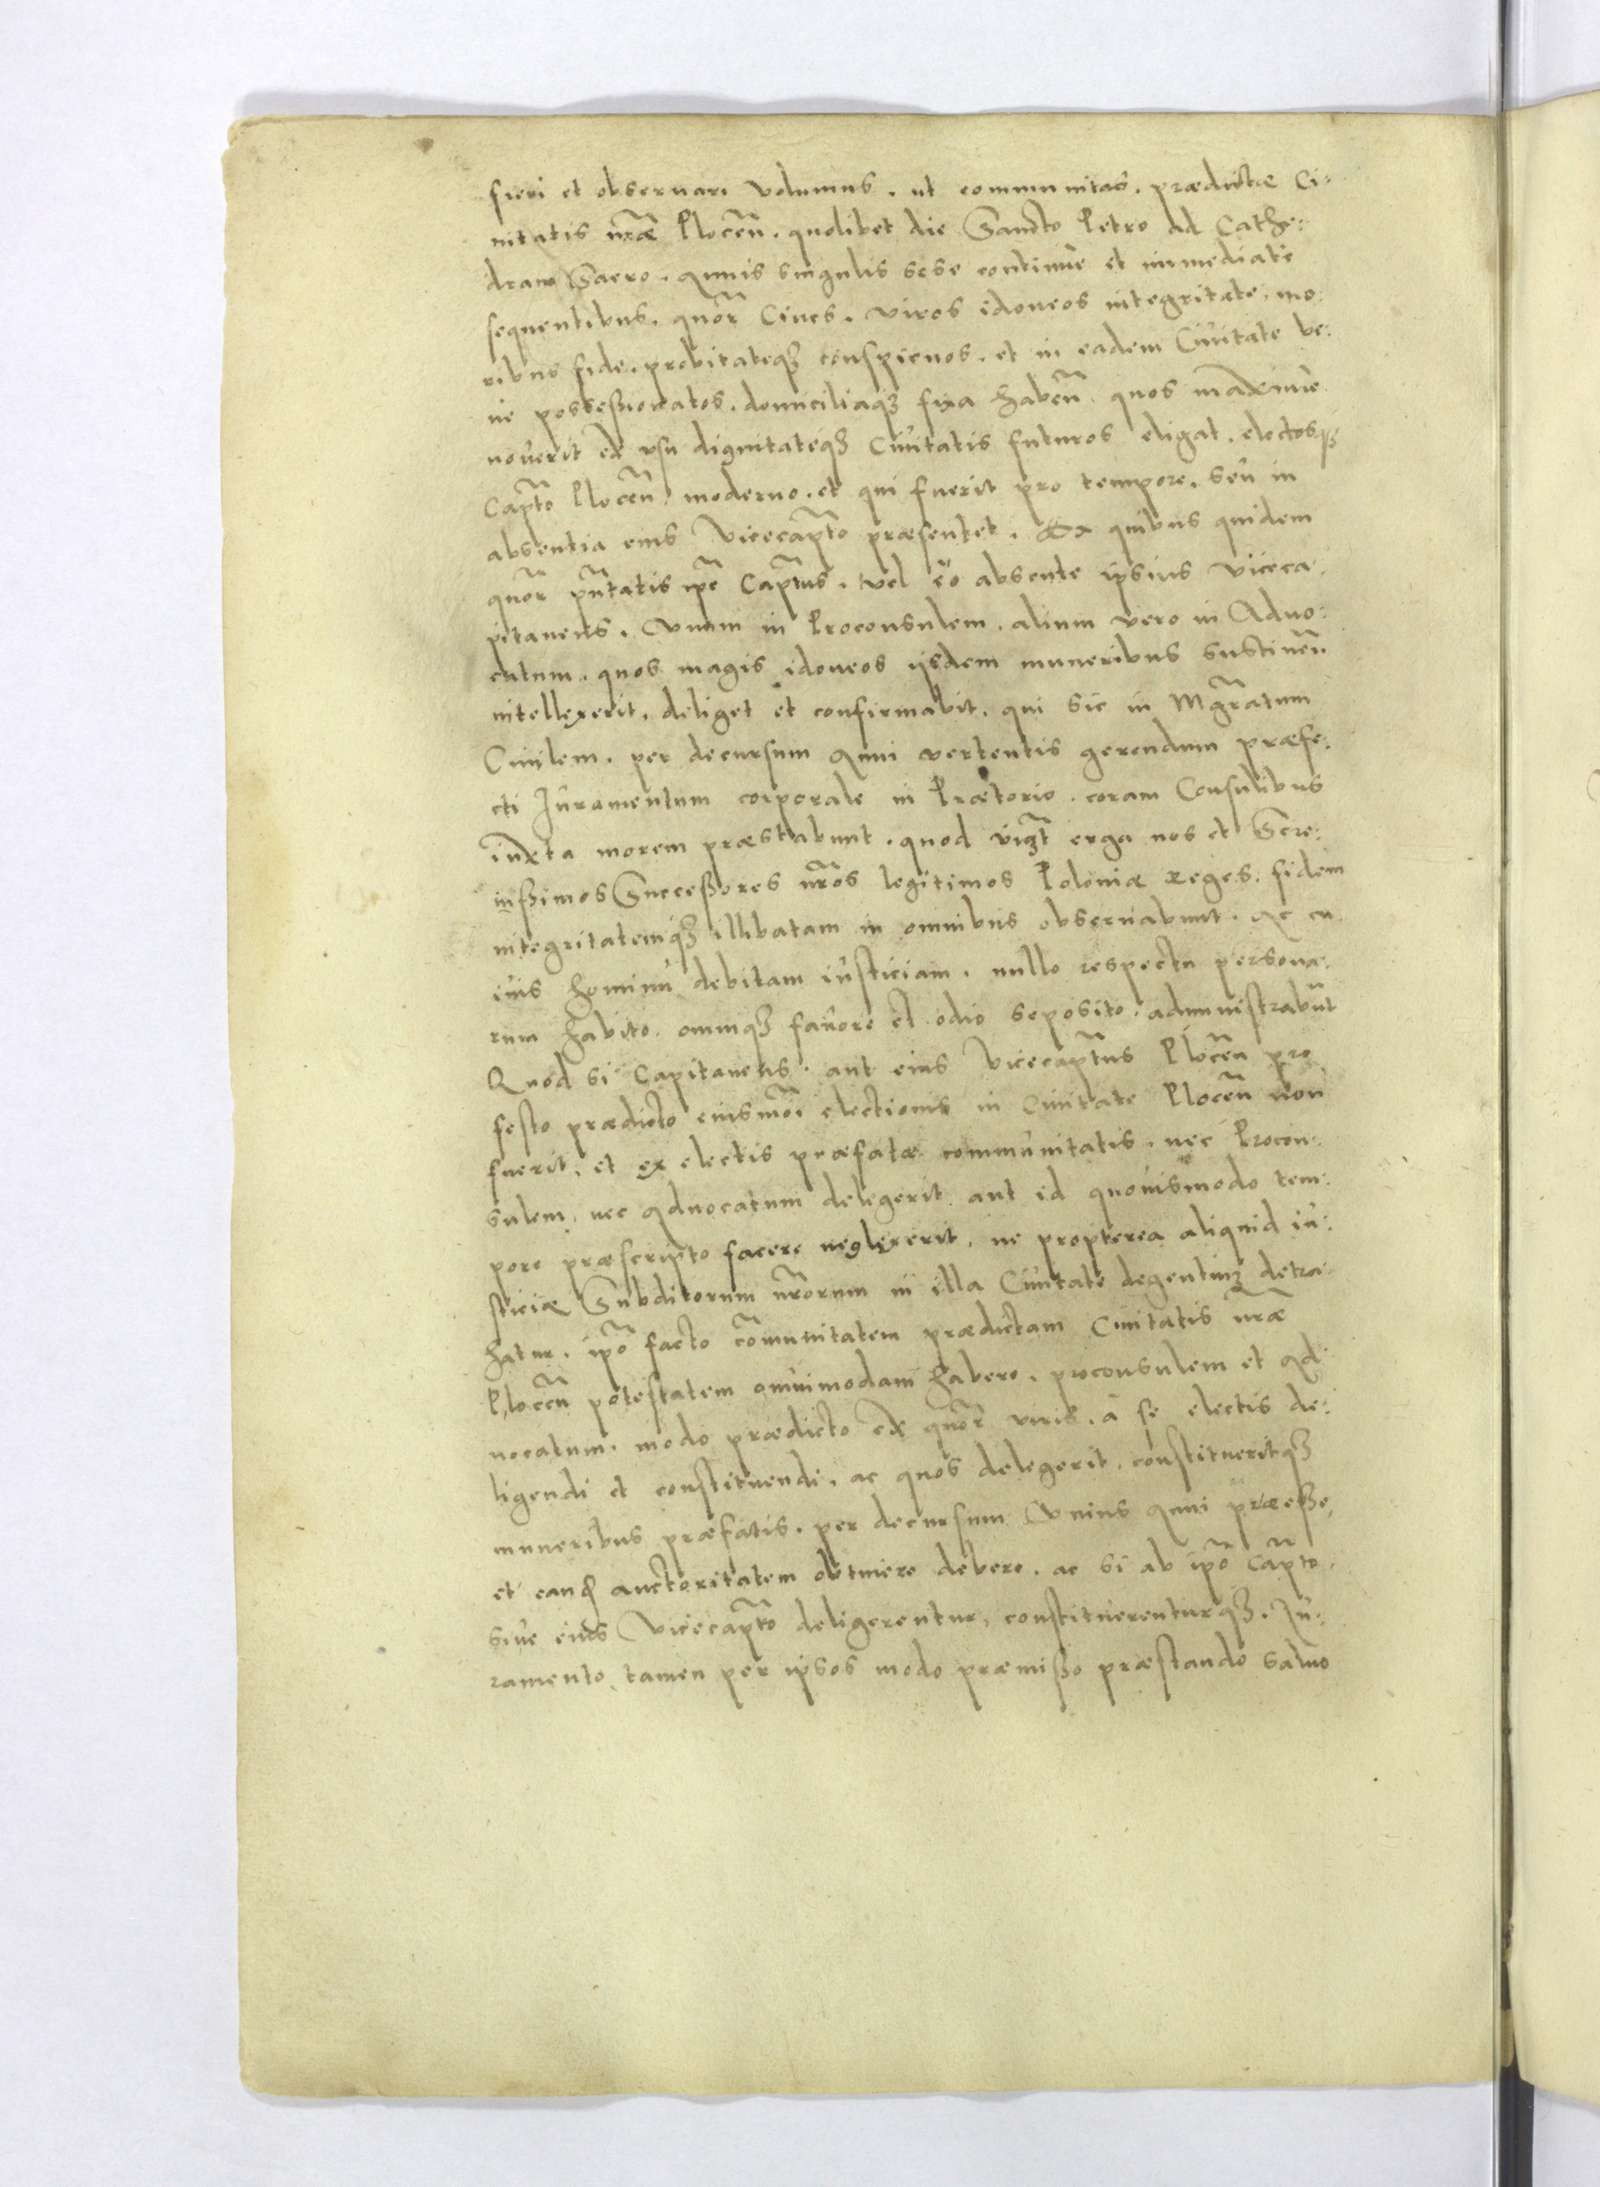 fieri et obseruari volumus. ut communitas. prædictæ Ci-
uitatis nr̃æ Plocen̄. quolibet die Sancto Petro ad Cathe-
dram Sacro. Annis singulis sese continue et immediate
sequentibus. quõr Ciues. viros idoneos integritate. mo-
ribus fide. probitateqȝ conspicuos. et in eadem Ciuitate be-
ne possessionatos. domiciliaqȝ fixa haben̄. quos maxime
nouerit ex vsu dignitateqȝ Ciuitatis futuros eligat. electosqȝ
Capt̃o Plocen̄. moderno. et qui fuerit pro tempore. seu in
absentia eius Vicecapt̃o præsentet. Ex quibus quidem
quõr pñtatis ip̃e Capt̃us. vel eo absente ipsius viceca-
pitaneus. Vnum in Proconsulem. alium vero in Aduo-
catum. quos magis idoneos ijsdem muneribus sustinen̄
intellexerit. deliget et confirmabit. qui sic in Mgr̃atum
Ciuilem. per decursum Anni vertentis gerendum præfe-
cti Iuramentum corporale in Prætorio. coram Consulibus
iuxta morem præstabunt. quod vigȝt erga nos et Sere-
nissimos Successores nr̃os legitimos Poloniæ reges. fidem
integritatemqȝ illibatam in omnibus obseruabunt. Ac cu
iuis hominu debitam iusticiam. nullo respectu persona-
rum habito. omniqȝ fauore et odio seposito. administrabũt
Quod si Capitaneus. aut eius Vicecapt̃us Plocen̄ pro
festo prædicto eiusmõi electionis in Ciuitate Plocen̄ non
fuerit. et ex electis præfatæ communitatis. nec Procon-
sulem. nec Aduocatum delegerit aut id quouismodo tem-
pore præscripto facere neglexerit. ne propterea aliquid iu-
sticiæ Subditorum nr̃orum in illa Ciuitate degentiuȝ detra-
hatur. ip̃o facto cõmunitatem prædictam Ciuitatis nr̃æ
Plocen̄ potestatem omnimodam habere. proconsulem et Ad-
uocatum. modo prædicto ex quõr viris. a se electis de-
ligendi et constituendi. ac quos delegerit. constitueritqȝ
muneribus præfatis. per decursum Vnius Anni præesse
et eand auctoritatem obtinere debere. ac si ab ip̃o Capt̃o.
siue eius Vicecapt̃o deligerentur. constituerenturqȝ. Iu-
ramento tamen per ipsos modo præmisso præstando saluo